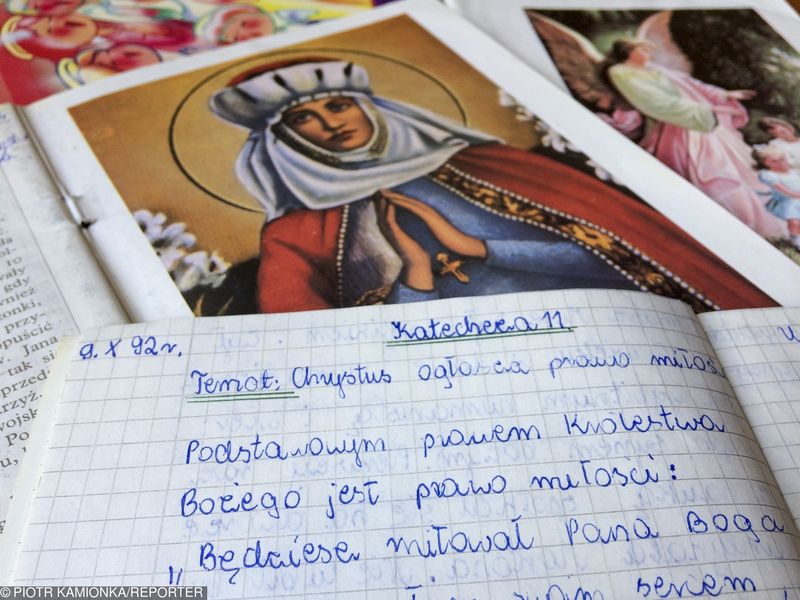 9. X 92r.
Katecheza 11
Temat: Chrystus ogłasza prawo miłoś
Podstawowym prawem Królestwa
Bożego jest prawo miłości:
„Będziesz miłował Pana Boga
sercem
to
gdy
nież
onki,
przy-
puścić
w. Jana
tak si
przed-
rzyż.
wojsk
Po
u,
© PIOTR KAMIONKA/REPORTER